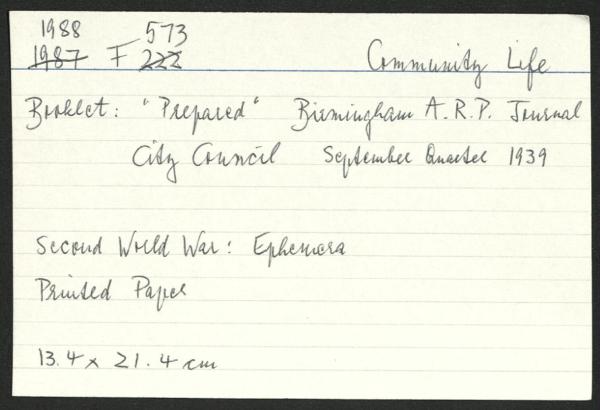 1988 573
1987 F 222 Community Life
Booklet: "Prepared" Birmingham A.R.P. Journal
City Council September Quarter 1939
Second World War: Ephemera
Printed Paper
13.4 x 21.4 cm